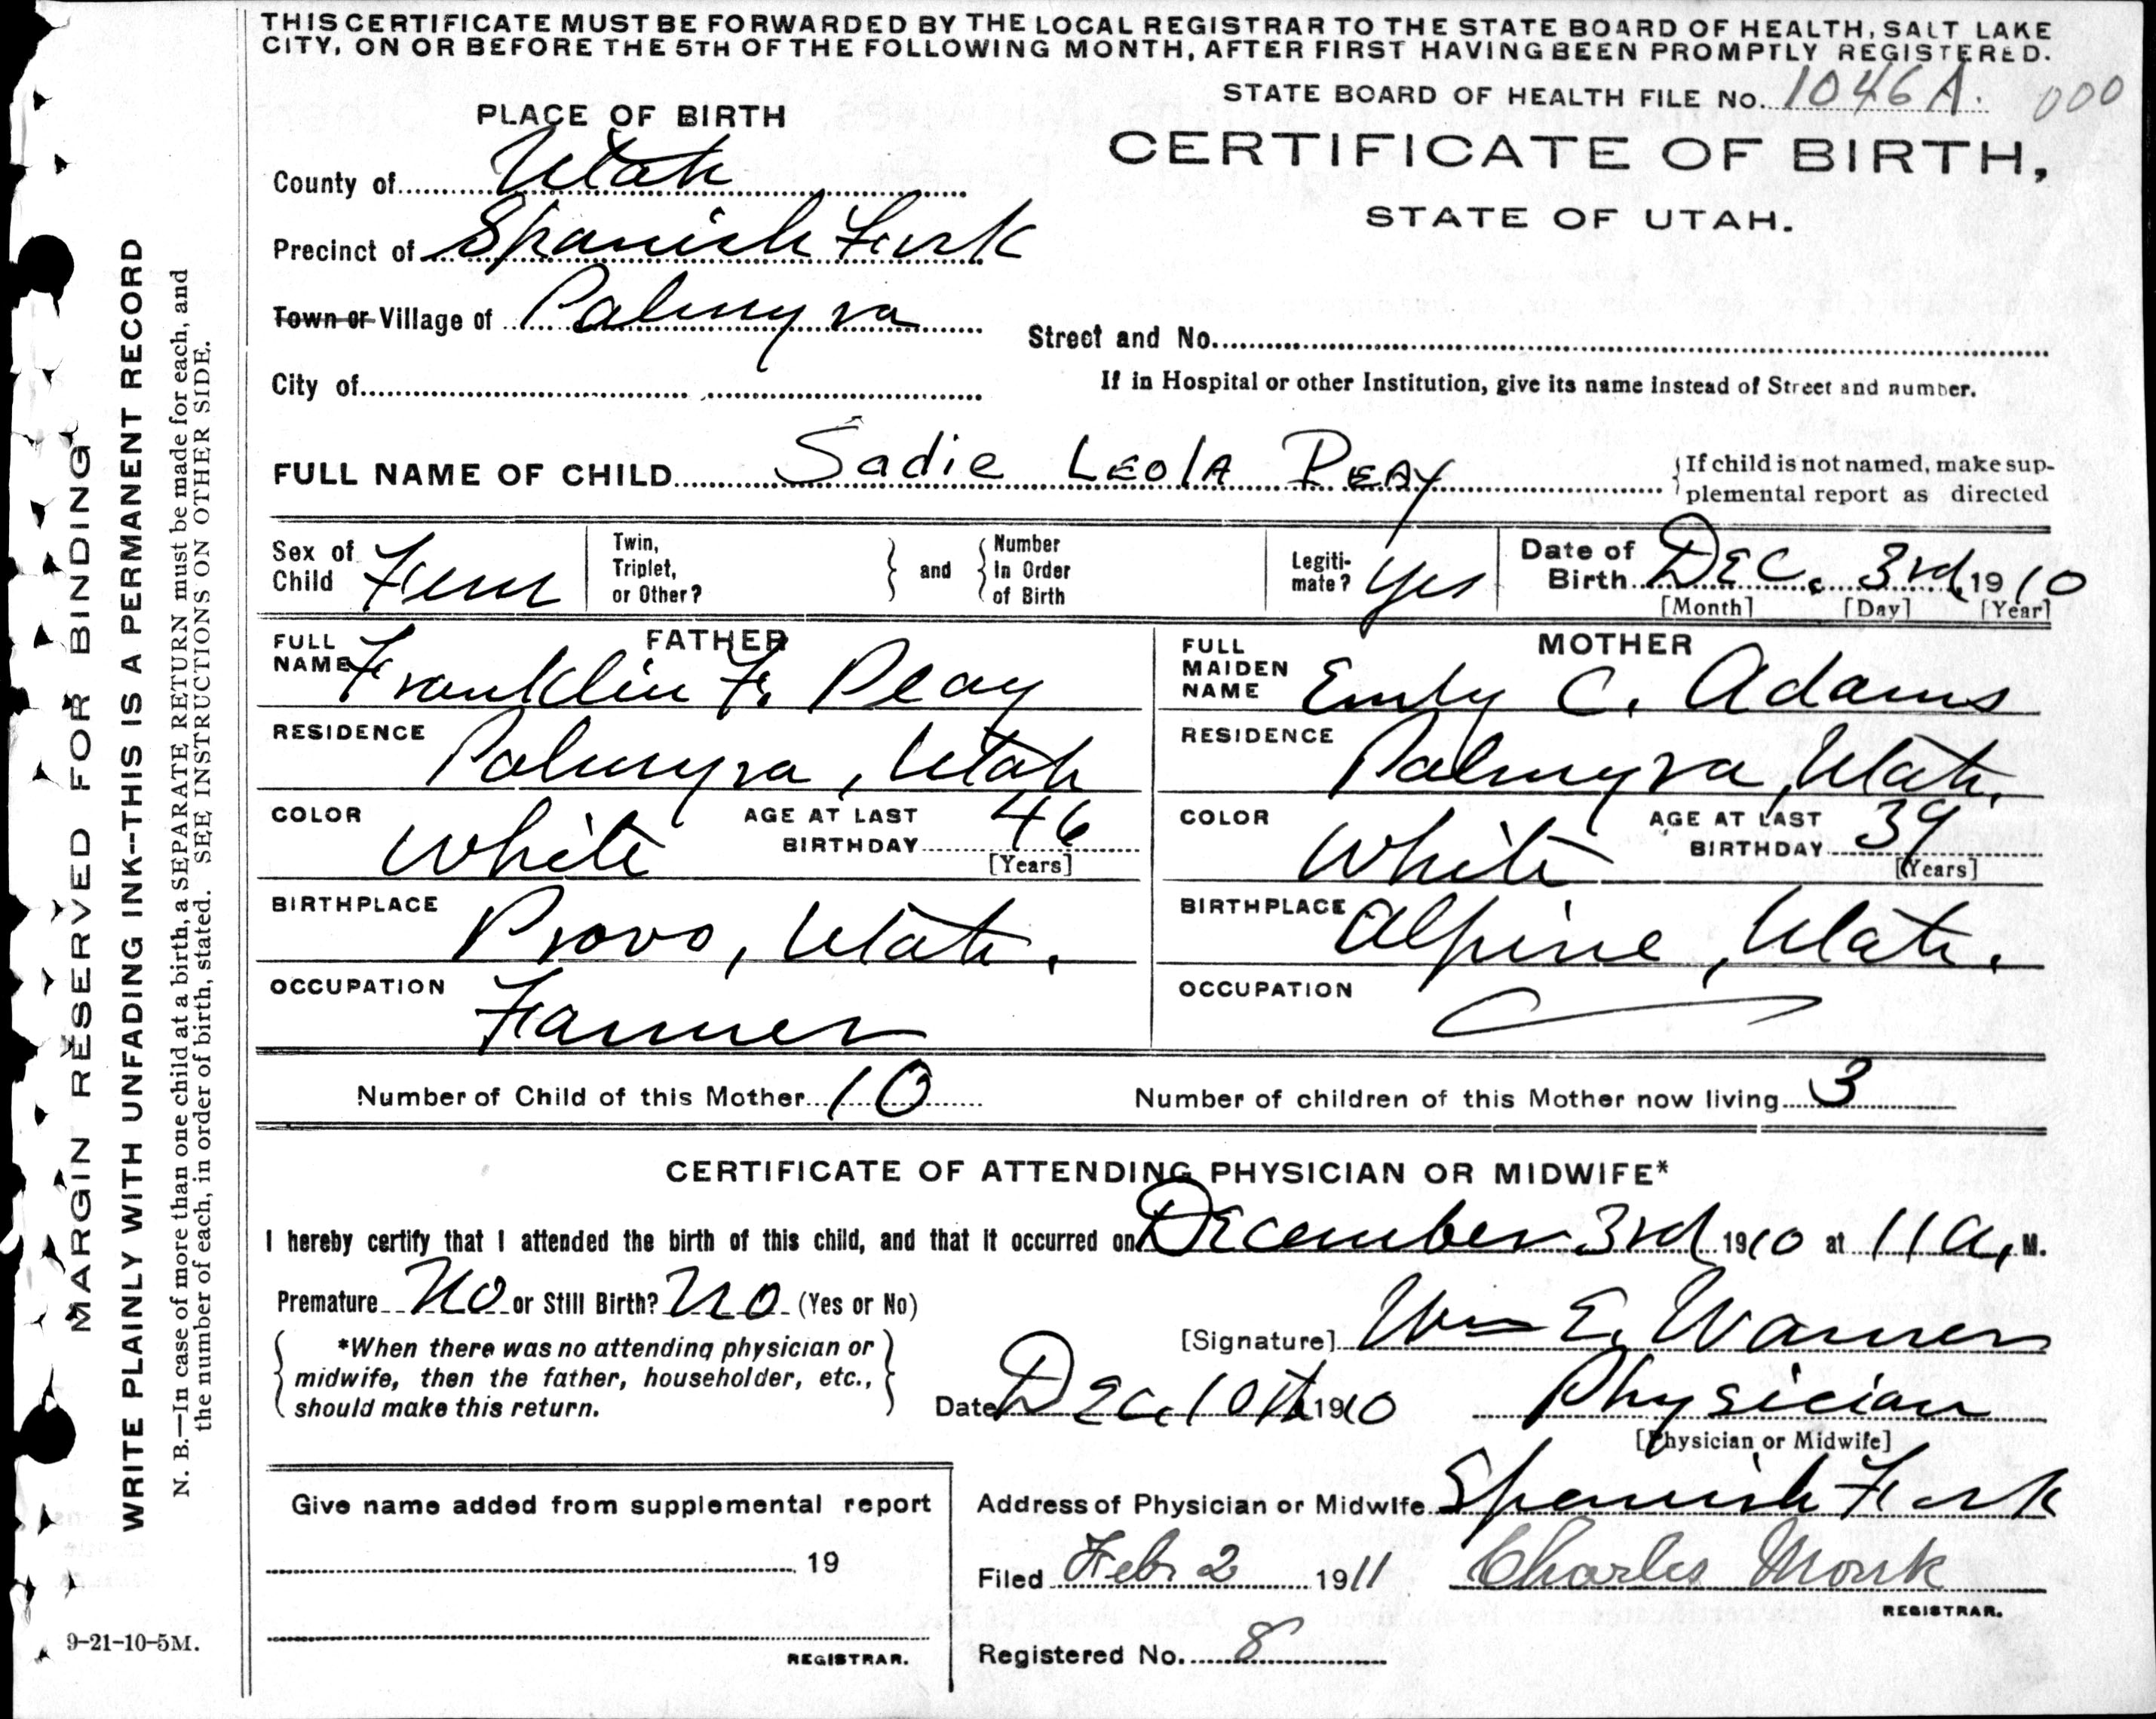 THIS CERTIFICATE MUST BE FORWARDED BY THE LOCAL REGISTRAR TO THE STATE BOARD OF HEALTH, SALT LAKE
CITY, ON OR BEFORE THE 5TH OF THE FOLLOWING MONTH, AFTER FIRST HAVING BEEN PROMPTLY REGISTERED.
STATE BOARD OF HEALTH FILE No. 1046A. 000
PLACE OF BIRTH
CERTIFICATE OF BIRTH,
STATE OF UTAH.
County of Utah
Precinct of Spanish Fork
Town or Village of Palmyra
Street and No.
City of
If in Hospital or other Institution, give its name instead of Street and number.
FULL NAME OF CHILD Sadie Leola Peay
If child is not named, make sup-
plemental report as directed
Sex of Child Fem
Twin, Triplet, or Other? and Number In Order of Birth
Legiti-mate? Yes
Date of Birth Dec. 3rd, 1910
[Month] [Day] [Year]
FATHER
FULL NAME Franklin F. Peay
RESIDENCE Palmyra, Utah
COLOR White
AGE AT LAST BIRTHDAY 46
[Years]
BIRTHPLACE Provo, Utah.
OCCUPATION Farmer
MOTHER
FULL MAIDEN NAME Emily C. Adams
RESIDENCE Palmyra, Utah.
COLOR White
AGE AT LAST BIRTHDAY 39
[Years]
BIRTHPLACE Alpine, Utah.
OCCUPATION
Number of Child of this Mother 10
Number of children of this Mother now living 3
CERTIFICATE OF ATTENDING PHYSICIAN OR MIDWIFE*
I hereby certify that I attended the birth of this child, and that it occurred on December 3rd 1910 at 11 a, M.
Premature No or Still Birth? No (Yes or No)
*When there was no attending physician or
midwife, then the father, householder, etc.,
should make this return.
[Signature] Wm E. Warner
Date Dec, 10th 1910
Physician
[Physician or Midwife]
Give name added from supplemental report
19
REGISTRAR.
Address of Physician or Midwife Spanish Fork
Filed Feb 2 1911 Charles Monk
REGISTRAR.
Registered No. 8
9-21-10-5M.
MARGIN RESERVED FOR BINDING
WRITE PLAINLY WITH UNFADING INK--THIS IS A PERMANENT RECORD
N. B.—In case of more than one child at a birth, a SEPARATE RETURN must be made for each, and
the number of each, in order of birth, stated. SEE INSTRUCTIONS ON OTHER SIDE.